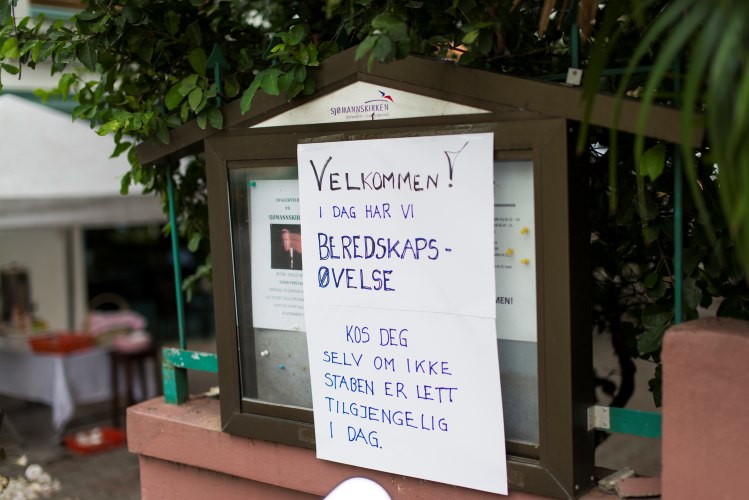 SJØMANNSKIRKEN
VELKOMMEN!
I DAG HAR VI
BEREDSKAPS-
ØVELSE
KOS DEG
SELV OM IKKE
STABEN ER LETT
TILGJENGELIG
I DAG.